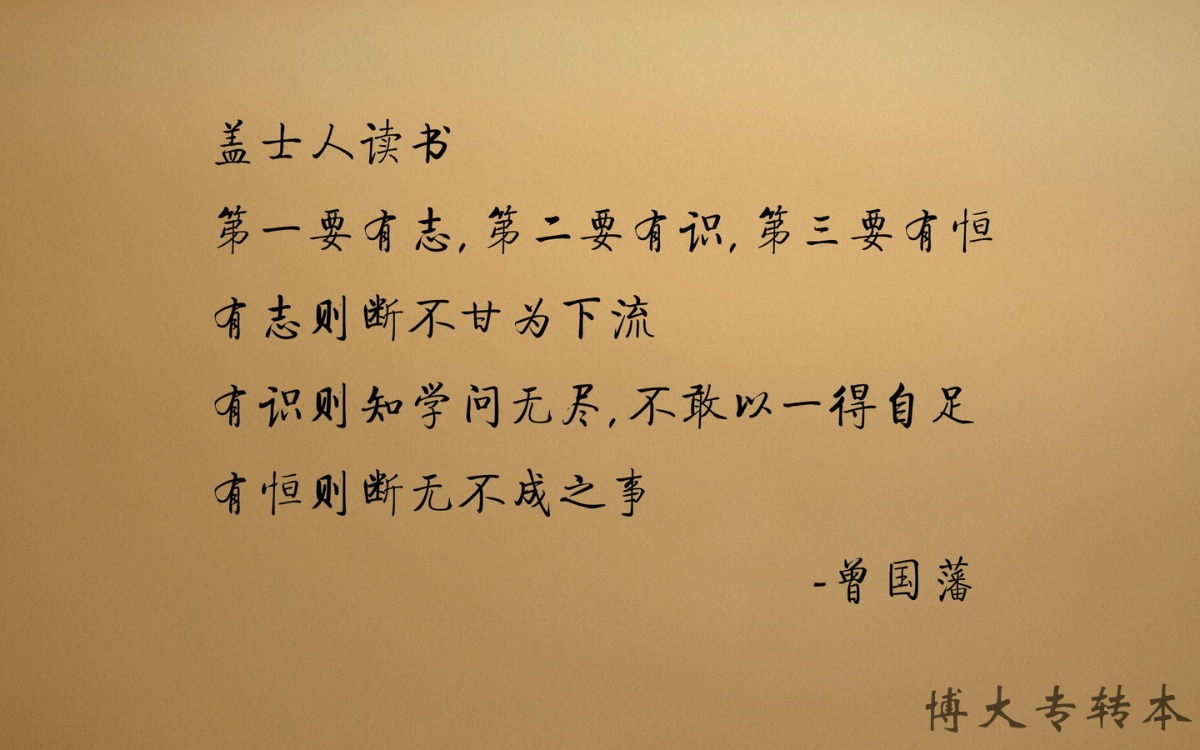 盖士人读书
第一要有志,第二要有识,第三要有恒
有志则断不甘为下流
有识则知学问无尽,不敢以一得自足
有恒则断无不成之事
-曾国藩
博大专转本